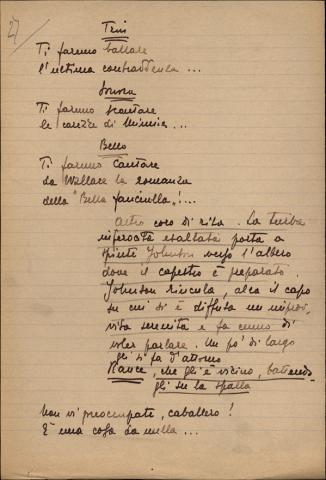 27
Trin
Ti faremo ballare
l'ultima contraddanza ...
Sonora
Ti faremo scontare
le carezze di Minnie ...
Bello
Ti faremo cantare
da Wallace la romanza
della "Bella fanciulla"! ...
Altro coro di risa. La turba
inferocita esaltata porta a
spinte Johnson verso l'albero
dove il capestro è preparato.
Johnson rincula, alza il capo
su cui si è diffusa un improv-
visa serenità e fa cenno di
voler parlare. Un po' di largo
gli si fa d'attorno
Rance, che gli è vicino, battendo-
gli su la spalla
Non vi preoccupate, caballero!
È una cosa da nulla ...